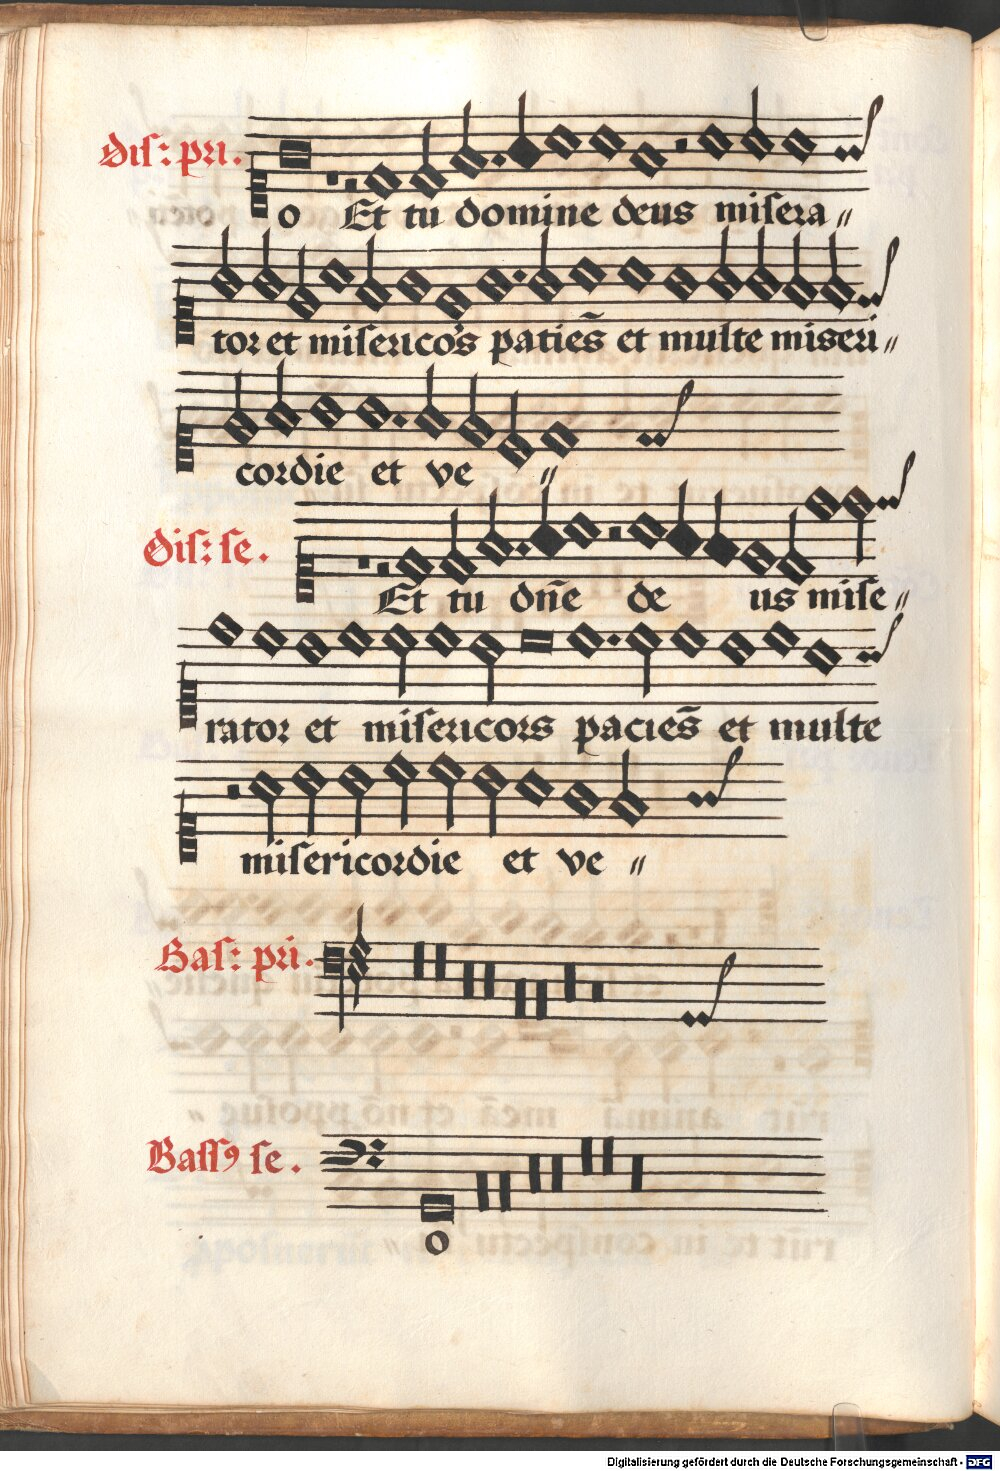 Disſ: pri.
o Et tu domine deus miſera〃
tor et miſericoŕs patiēs et multe miseri〃
cordie et ve 〃
Diſ: ſe.
Et tu dn̄e de us miſe〃
rator et miſericors paciēs et multe
miſericordie et ve 〃
Baſ: pri.
Baſſꝰ ſe.
o
Digitalisierung gefördert durch die Deutsche Forschungsgemeinschaft - DFG